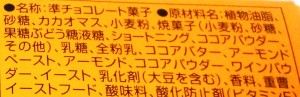 ●名称:準チョコレート菓子 ●原材料名:植物油脂、
砂糖、カカオマス、小麦粉、焼菓子(小麦粉、砂糖、
果糖ぶどう糖液糖、ショートニング、ココアパウダー、
その他)、乳糖、全粉乳、ココアバター、アーモンド
ペースト、アーモンド、ココアパウダー、ワインパウ
ダー、イースト、乳化剤(大豆を含む)、香料、重曹、
イーストフード、酸味料、酸化防止剤(ビタミンE)